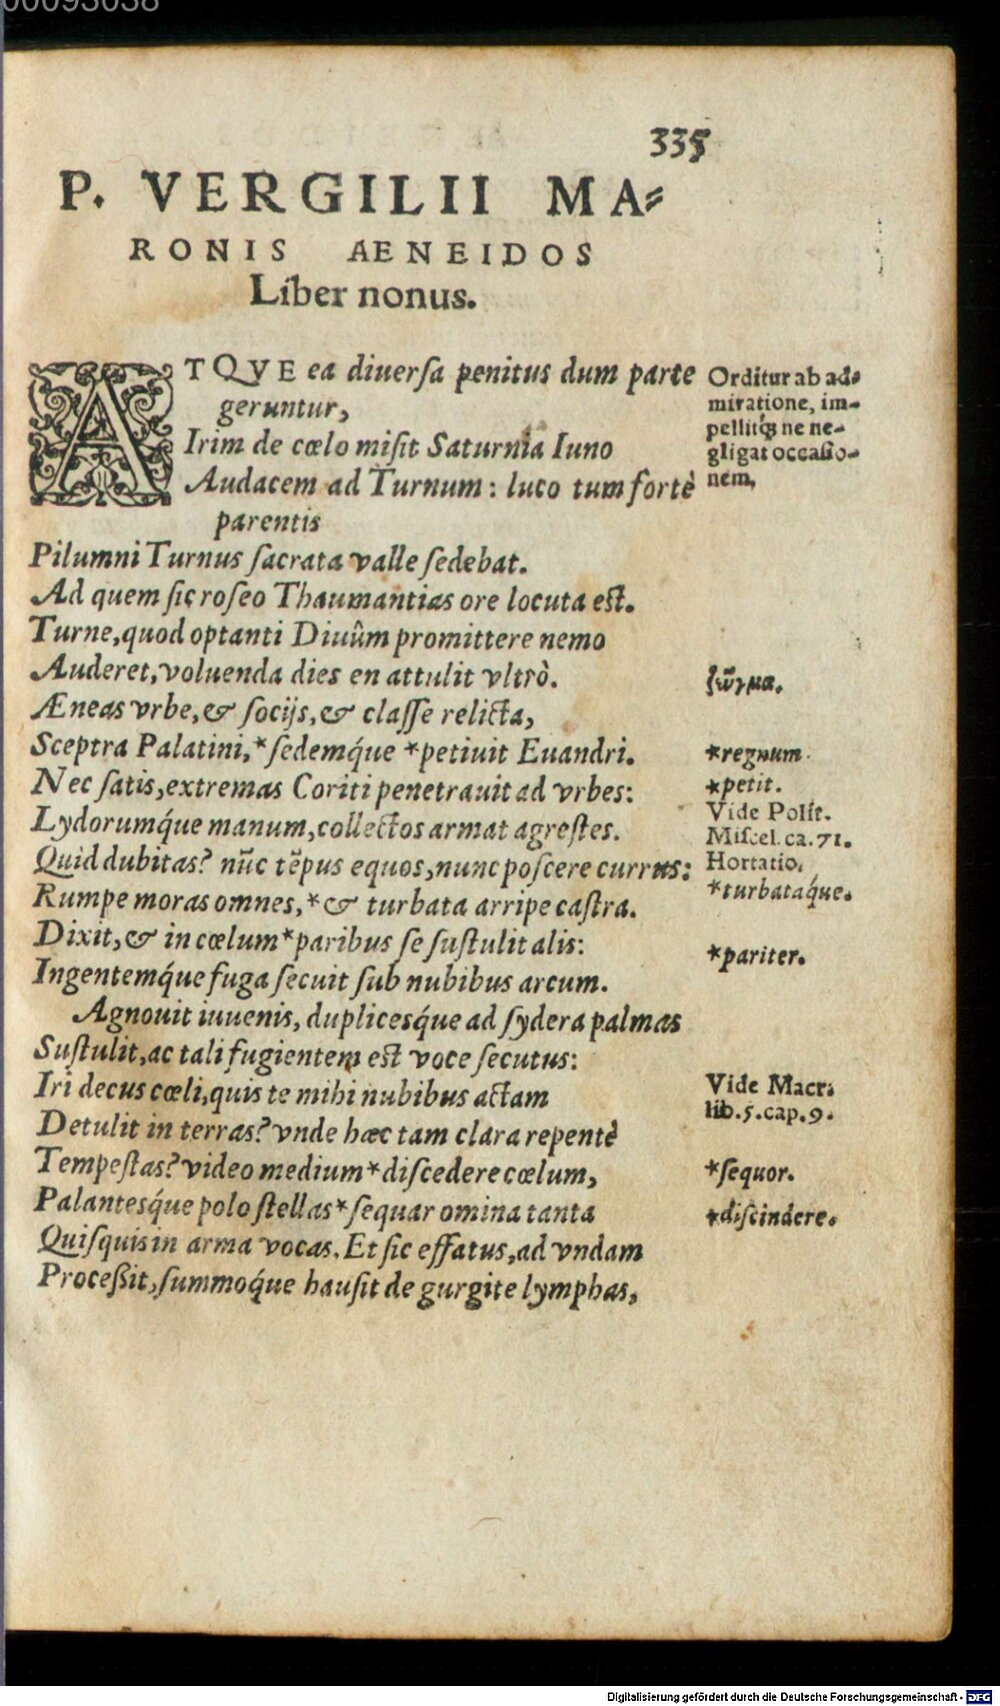 00093038
335
P. VERGILII MA⸗
RONIS AENEIDOS
Liber nonus.
ATQVE ea diuerſa penitus dum parte
geruntur,
Irim de cœlo miſit Saturnia Iuno
Audacem ad Turnum: luco tum fortè
parentis
Pilumni Turnus ſacrata valle ſedebat.
Ad quem ſic roſeo Thaumantias ore locuta est.
Turne, quod optanti Diuûm promittere nemo
Auderet, voluenda dies en attulit vltrò.
Æneas vrbe, & ſocijs, & claſſe relicta,
Sceptra Palatini, *ſedemq́ue *petiuit Euandri.
Nec ſatis, extremas Coriti penetrauit ad vrbes:
Lydorumq́ue manum, collectos armat agreſtes.
Quid dubitas? nũc tẽpus equos, nunc poſcere currus:
Rumpe moras omnes, *& turbata arripe caſtra.
Dixit, & in cœlum *paribus ſe ſuſtulit alis:
Ingentemq́ue fuga ſecuit ſub nubibus arcum.
Agnouit iuuenis, duplicesq́ue ad ſydera palmas
Suſtulit, ac tali fugientem est voce ſecutus:
Iri decus cœli, quis te mihi nubibus actam
Detulit in terras? vnde hæc tam clara repentè
Tempeſtas? video medium *diſcedere cœlum,
Palantesq́ue polo ſtellas *ſequar omina tanta
Quiſquis in arma vocas. Et ſic effatus, ad vndam
Proceßit, ſummoq́ue hauſit de gurgite lymphas,
Orditur ab ad⸗
miratione, im-
pellitq́; ne ne-
gligat occaſio-
nem,
ζῶγμα.
*regnum.
*petit.
Vide Polit.
Miſcel. ca. 71.
Hortatio.
*turbataq́ue.
*pariter.
Vide Macr.
lib. 5. cap. 9.
*ſequor.
*diſcindere.
Digitalisierung gefördert durch die Deutsche Forschungsgemeinschaft - DFG